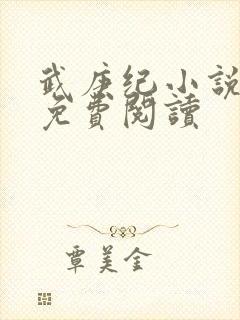 武庚纪小說
免費閱讀
覃美金